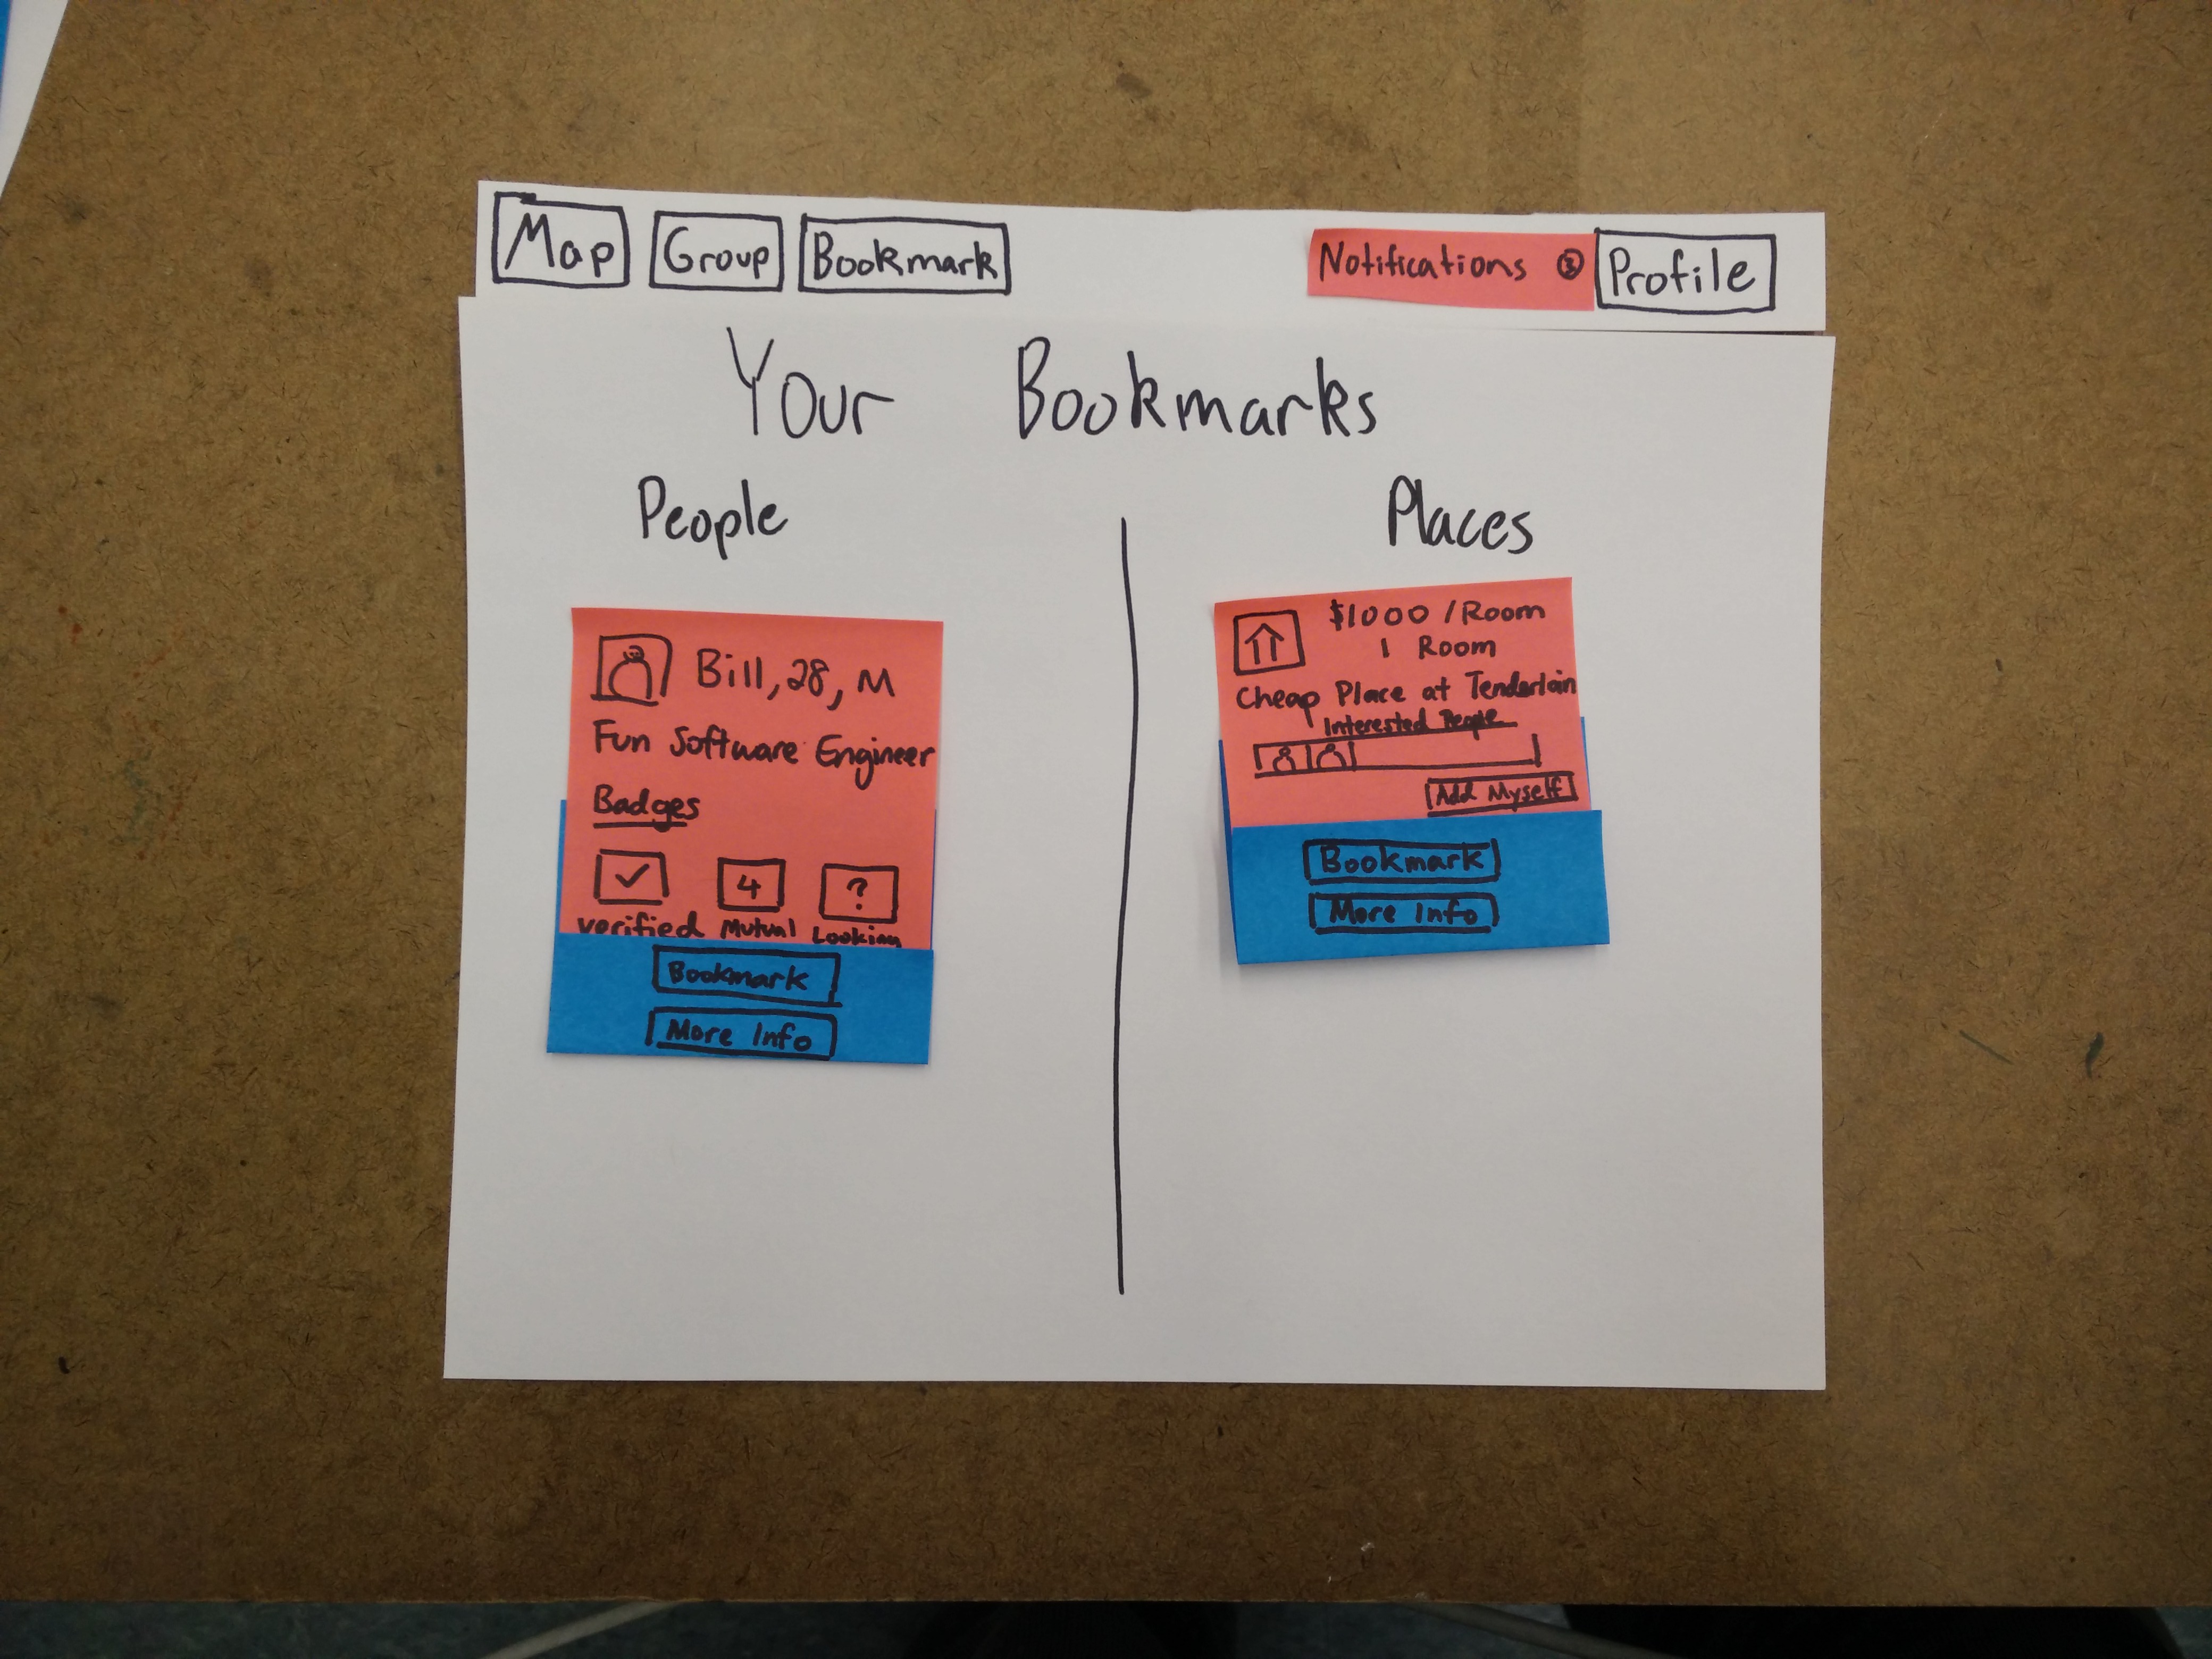 Map Group Bookmark Notifications Profile
Your Bookmarks
People
Bill, 28, M
Fun Software Engineer
Badges
4 ?
verified Mutual Looking
Bookmark
More Info
Places
$1000 /Room
1 Room
Cheap Place at Tenderloin
Interested People
Add Myself
Bookmark
More Info